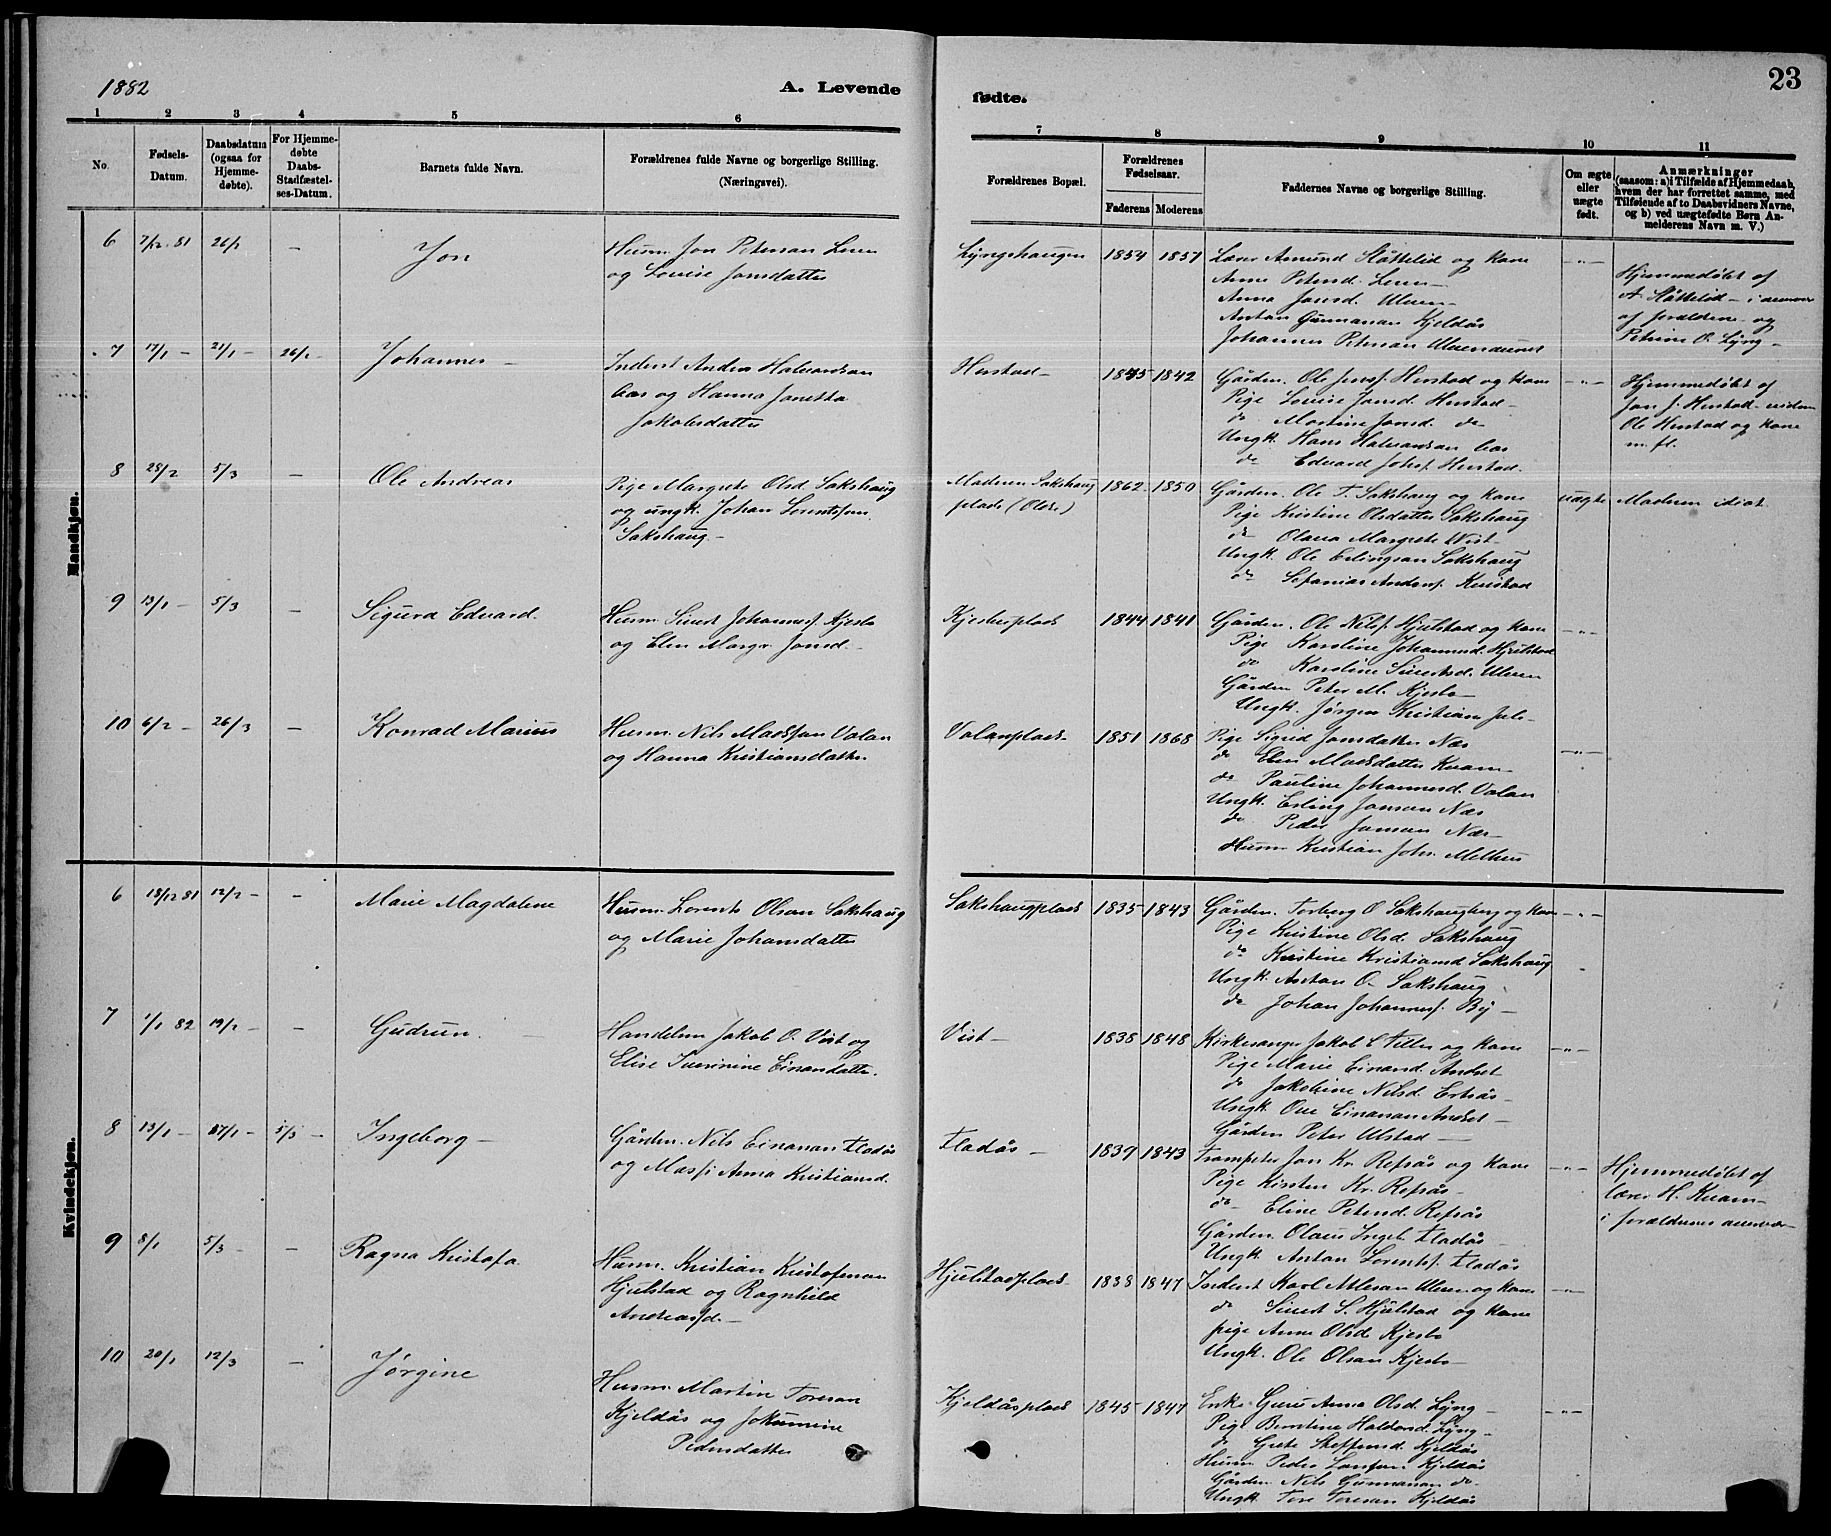 1882
A. Levende
fødte.
23
1 2 3 4 5 6
7 8 9 10 11
No.
Fødsels-
Datum.
Daabsdatum
(ogsaa for
Hjemme-
døbte).
For Hjemme-
døbte
Daabs-
Stadfæstel-
ses-Datum.
Barnets fulde Navn.
Forældrenes fulde Navne og borgerlige Stilling.
(Næringsvei).
Forældrenes Bopæl.
Forældrenes
Fødselsaar.
Faderens Moderens
Faddernes Navne og borgerlige Stilling.
Om ægte
eller
uægte
født.
Anmærkninger
(saasom: a) i Tilfælde af Hjemmedaab,
hvem der har forrettet samme, med
Tilføiende af to Daabsvidners Navne,
og b) ved uægtefødte Børn An-
melderens Navn m. V.)
Mandkjøn.
6 7/12 81 26/2 — Jon
Husm. Jon Peterson Leren
og Lovise Jonsdatter
Lyngshaugen 1854 1857
Lærer Amund Slåttelid og Kone
Anne Petersd. Leren
Anna Jonsd. Ulven
Anton Gunnarsan Kjeldås
Johannes Petersan
Hjemmedøbt af
A. Slåttelid - i
af forældrene og
Petrine O. Lyng -
7 17/1 - 21/1 - 26/2 - Johannes -
Inderst Anders Halvorsen
Aas og Hanna Jonetta
Jakobsdatter
Henstad - 1845 1842
Gården. Ole Jensf. Henstad og Kone
Pige Lovise Jonsd. Henstad -
do Martine Jonsd. do
Ungk. Hans Halvorsen Aas
do Edvard Johsf. Henstad.
Hjemmedøbt af
Jon J. Henstad
Ole Henstad og Kone
m. fl.
8 25/2 5/3 — Ole Andreas
Pige Margrete Olsd. Sakshaug
og ungk. Johan Lorntssen
Sakshaug -
Moderen Sakshaug
plads 1862 1850
Gården. Ole T. Sakshaug og Kone
Pige Kristine Olsdatter Sakshaug
do Olava Margrete Vist -
Ungk. Ole Erlingsan Sakshaug
do Sefanias Andersf.
uægte Moderen idiot
9 13/1 - 5/3 — Sigurd Edvard.
Husm. Sivert Johannesf. Kjesbo
og Elen Margr. Jonsd. -
Kjesbuplads 1844 1841
Gården. Ole Nilsf. Hjulstad og Kone
Pige Karoline Johannesd. Hjulstad
do Karoline Sivertsd. Ulven
Gården Peter M. Kjesbo -
Ungk. Jørgen Kristian
10 6/2 - 26/3 — Konrad Marius
Husm. Nils Madssan Valan
og Hanna Kristiansdatter.
Valanplads 1851 1868
Pige Sigrid Jonsdatter Næs
do Elen Madsdatter Kvam -
do Pauline Johannesd. Valan
Ungk. Erling Jonsan Næs
do Peder Jonsan Næs -
Husm. Kristian Johs. Melhus
Kvindekjøn.
6 18/12 81 12/2 - — Marie Magdalene
Husm. Lorents Olsan Sakshaug
og Marie Johansdatter
Sakshaugplads 1835 1843
Gården. Torberg O Sakshaugberg og Kone
Pige Kristine Olsd. Sakshaug
do Kristine Kristiansd Sakshaug
Ungk. Anton O. Sakshaug
do Johan Johannesf. By -
7 1/1 82 19/2 - — Gudrun.
Handelsm. Jakob O. Vist og
Elise Einarsdatter.
Vist - 1838 1848
Kirkesanger Jakob Tiller og Kone
Pige Marie Einarsd.
do Jakobine Nilsd.
Ungk. Ole Einarsan
Gården Peter Ulstad -
8 13/1 - 17/1 - 5/3 - Ingeborg -
Gården. Nils Einarsan Fladås
og Anna Kristiansd.
Fladås - 1839 1843
Trompeter Jon Kr. Refsås og Kone
Pige Kirsten Kr. Refsås -
do Eline Petersd. Refsås
Gården. Olaus Fladås
Ungk. Anton Lorentsf. Fladås
Hjemmedøbt af
lærer H. Kvam -
i forældrenes
9 8/1 5/3 - — Ragna Kristofa.
Husm. Kristian Kristofersan
Hjulstad og Ragnhild
Andreasd. -
Hjulstadplads 1838 1847
Inderst Karl Atlesan Ulven og Kone
do Sivert S. Hjulstad og Kone
Pige Anne Olsd Kjesbo
Ungk. Ole Olsan Kjesbo -
10 20/1 12/3 — Jørgine
Husm. Martin Toresan
Kjeldås og
Pedersdatter
Kjeldåsplads 1845 1847
Enke Anna Olsd. Lyng -
Pige Berntine Haldorsd. Lyng -
do Grete Steffensd. Kjeldås
Husm Peder Kjeldås
Gården Nils Gunnarsan do -
Ungk. Tore Toresan Kjeldås